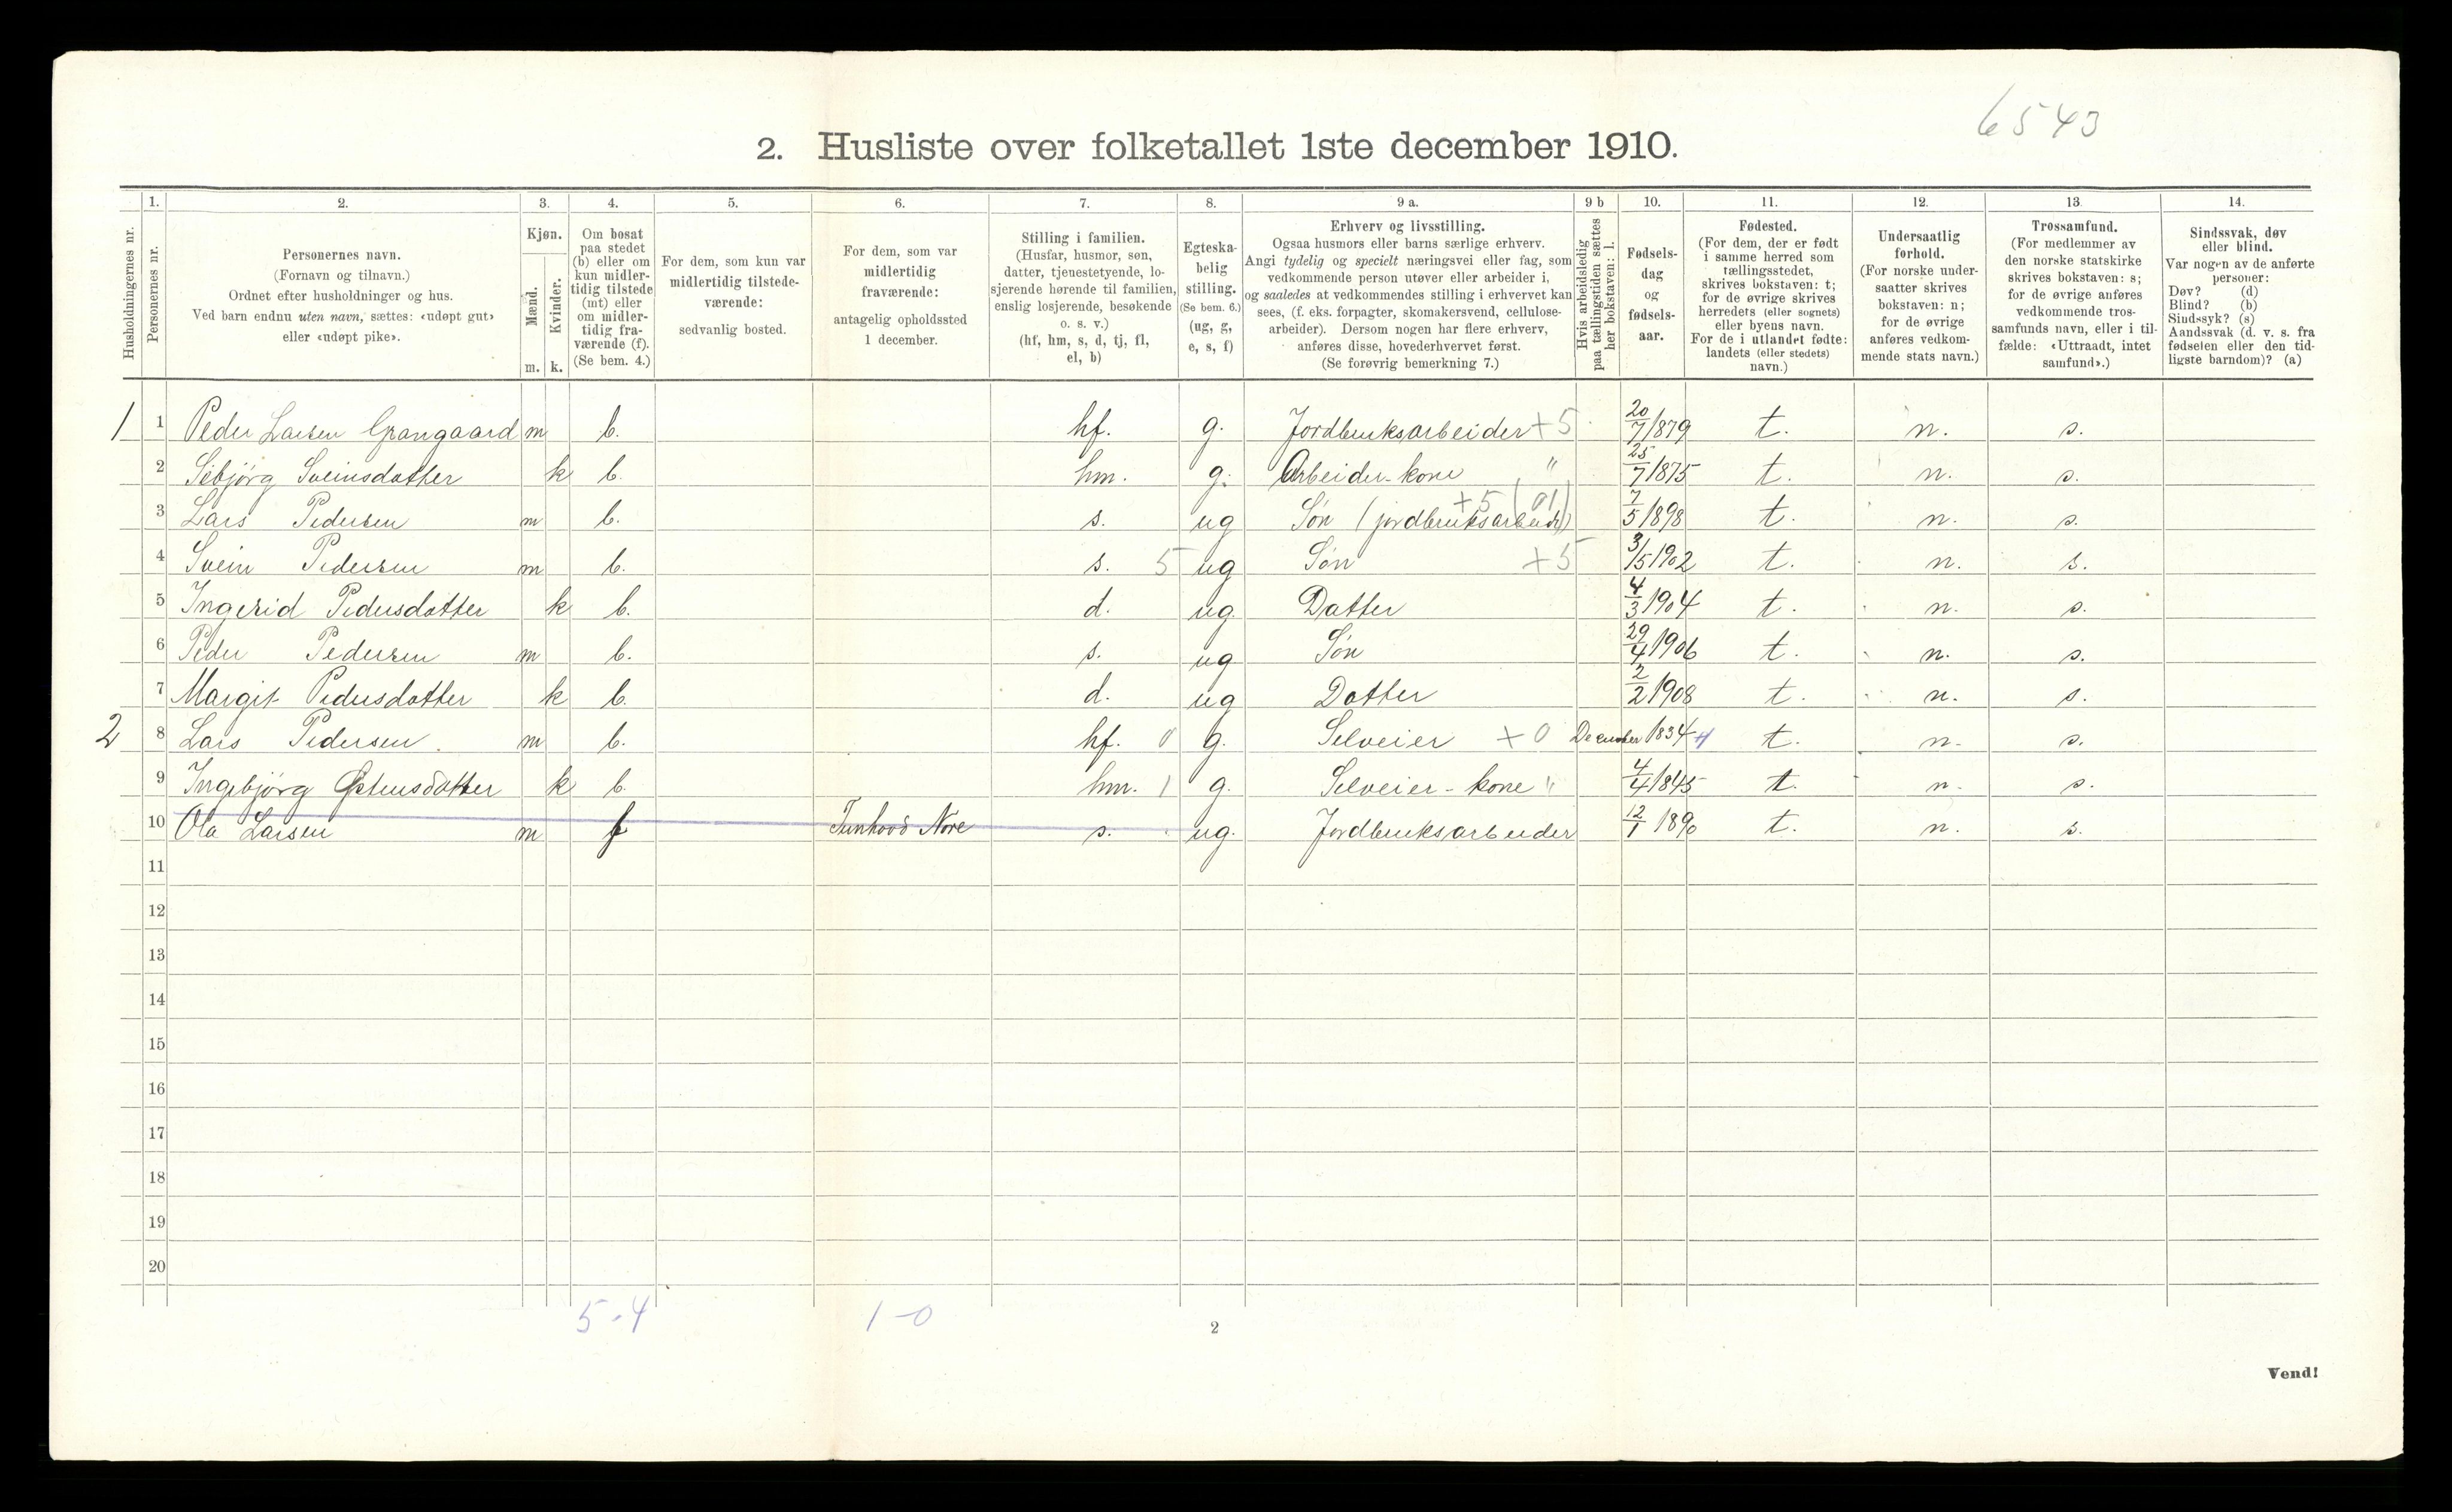 6543
2. Husliste over folketallet 1ste december 1910.
1. 2. 3. 4. 5. 6. 7. 8. 9 a. 9 b 10. 11. 12. 13. 14.
Husholdningernes nr.
Personernes nr.
Personernes navn.
(Fornavn og tilnavn.)
Ordnet efter husholdninger og hus.
Ved barn endnu uten navn, sættes: «udøpt gut»
eller «udøpt pike».
Kjøn.
Mænd.
Kvinder.
m. k.
Om bosat
paa stedet
(b) eller om
kun midler-
tidig tilstede
(mt) eller
om midler-
tidig fra-
værende (f).
(Se bem. 4.)
For dem, som kun var
midlertidig tilstede-
værende:
sedvanlig bosted.
For dem, som var
midlertidig
fraværende:
antagelig opholdssted
1 december.
Stilling i familien.
(Husfar, husmor, søn,
datter, tjenestetyende, lo-
sjerende hørende til familien,
enslig losjerende, besøkende
o. s. v.)
(hf, hm, s, d, tj, fl,
el, b)
Egteska-
belig
stilling.
(Se bem. 6.)
(ug, g,
e, s, f)
Erhverv og livsstilling.
Ogsaa husmors eller barns særlige erhverv.
Angi tydelig og specielt næringsvei eller fag, som
vedkommende person utøver eller arbeider i,
og saaledes at vedkommendes stilling i erhvervet kan
sees, (f. eks. forpagter, skomakersvend, cellulose-
arbeider). Dersom nogen har flere erhverv,
anføres disse, hovederhvervet først.
(Se forøvrig bemerkning 7.)
Hvis arbeidsledig
paa tællingstiden sættes
her bokstaven: l.
Fødsels-
dag
og
fødsels-
aar.
Fødested.
(For dem, der er født
i samme herred som
tællingsstedet,
skrives bokstaven: t;
for de øvrige skrives
herredets (eller sognets)
eller byens navn.
For de i utlandet fødte:
landets (eller stedets)
navn.)
Undersaatlig
forhold.
(For norske under-
saatter skrives
bokstaven: n;
for de øvrige
anføres vedkom-
mende stats navn.)
Trossamfund.
(For medlemmer av
den norske statskirke
skrives bokstaven: s;
for de øvrige anføres
vedkommende tros-
samfunds navn, eller i til-
fælde: «Uttraadt, intet
samfund».)
Sindssvak, døv
eller blind.
Var nogen av de anførte
personer:
Døv? (d)
Blind? (b)
Sindssyk? (s)
Aandssvak (d. v. s. fra
fødselen eller den tid-
ligste barndom)? (a)
1 1 Peder Larsen Grangaard m b. hf. g. Jordbruksarbeider +5 20/7 1879 t. n. s.
2 Sebjörg Sveinsdatter k b. hm. g. Arbeider-kone " 25/7 1875 t. n. s.
3 Lars Pedersen m b. s. ug Sön (jordbruksarbeide) +5 (01) 7/5 1898 t. n. s.
4 Svein Pedersen m b. s. 5 ug Sön +5 3/5 1902 t. n. s.
5 Ingerid Pedersdatter k b. d. ug. Datter 4/3 1904 t. n. s.
6 Peder Pedersen m b. s. ug Sön 29/4 1906 t. n. s.
7 Margit Pedersdatter k b. d. ug Datter 2/2 1908 t. n. s.
2 8 Lars Pedersen. m b. hf. 0 g. Selveier +0 December 1834 t. n. s.
9 Ingebjörg k b. hm. 1 g. Selveier-kone " 4/4 1845 t. n. s.
10 Ola Larsen m f Tunhovd Nore s. ug. Jordbruksarbeider 12/1 1890 t. n. s.
11
12
13
14
15
16
17
18
19
20
5-4 1-0
2
Vend!